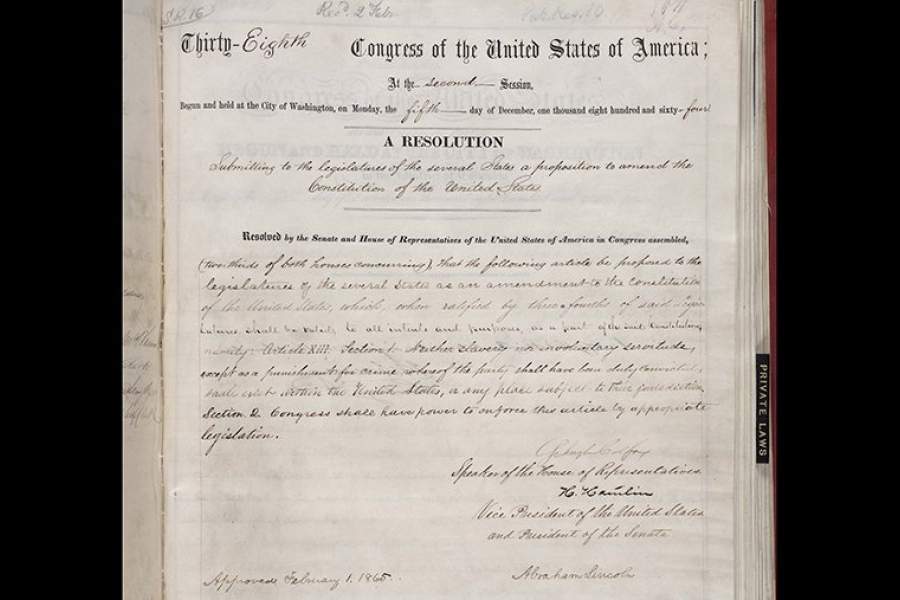 S.R. 16
Recd. 2 Feb
Thirty-Eighth Congress of the United States of America;
At the second Session,
Begun and held at the City of Washington, on Monday, the fifth day of December, one thousand eight hundred and sixty-four
A RESOLUTION
Submitting to the legislatures of the several States a proposition to amend the
Constitution of the United States
Resolved by the Senate and House of Representatives of the United States of America in Congress assembled,
(two-thirds of both houses concurring), that the following article be proposed to the
legislatures of the several States as an amendment to the Constitution
of the United States, which, when ratified by three-fourths of said Legis-
latures, shall be valid, to all intents and purposes, as a part of the said Constitution,
namely: Article XIII. Section 1. Neither slavery nor involuntary servitude,
except as a punishment for crime whereof the party shall have been duly convicted,
shall exist within the United States, or any place subject to their jurisdiction.
Section 2. Congress shall have power to enforce this article by appropriate
legislation.
Schuyler Colfax
Speaker of the House of Representatives
H. Hamlin
Vice President of the United States
and President of the Senate
Approved February 1. 1865.
Abraham Lincoln
PRIVATE LAWS